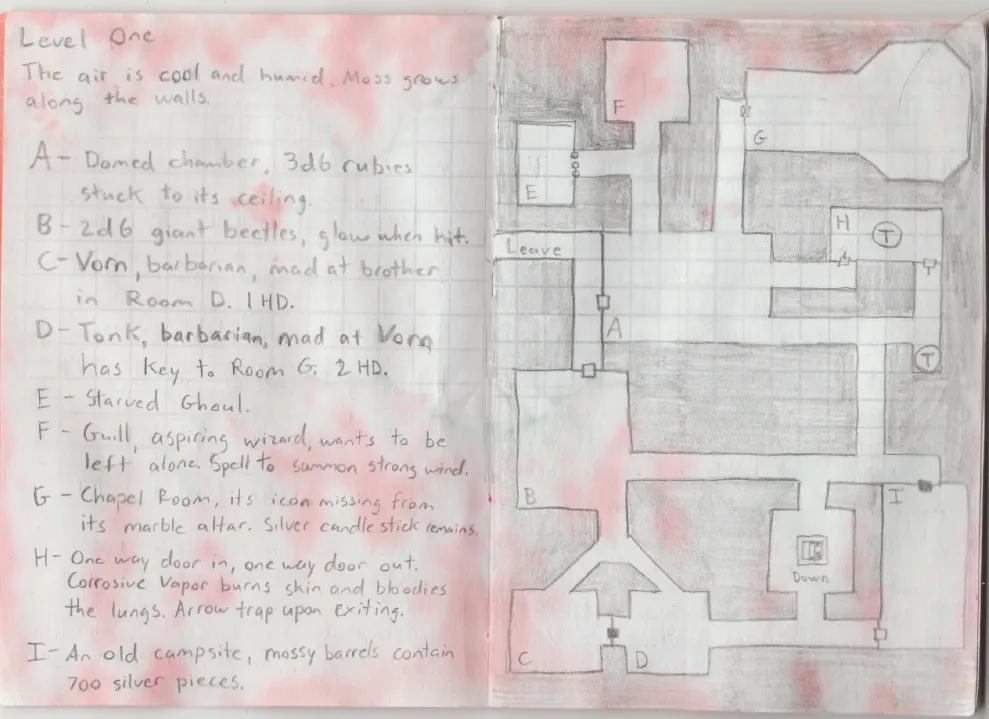 Level One
The air is cool and humid. Moss grows
along the walls.
A - Domed chamber, 3d6 rubies
stuck to its ceiling.
B - 2d6 giant beetles, glow when hit.
C - Vorn, barbarian, mad at brother
in Room D. 1 HD.
D - Tonk, barbarian, mad at Vorn
has Key to Room G. 2 HD.
E - Starved Ghoul.
F - Guill, aspiring wizard, wants to be
left alone. Spell to summon strong wind.
G - Chapel Room, its icon missing from
its marble altar. Silver candle stick remains.
H - One way door in, one way door out.
Corrosive Vapor burns skin and bloodies
the lungs. Arrow trap upon exiting.
I - An old campsite, mossy barrels contain
700 silver pieces.
F
G
E
H
T
Leave
A
T
B
I
Down
C
D